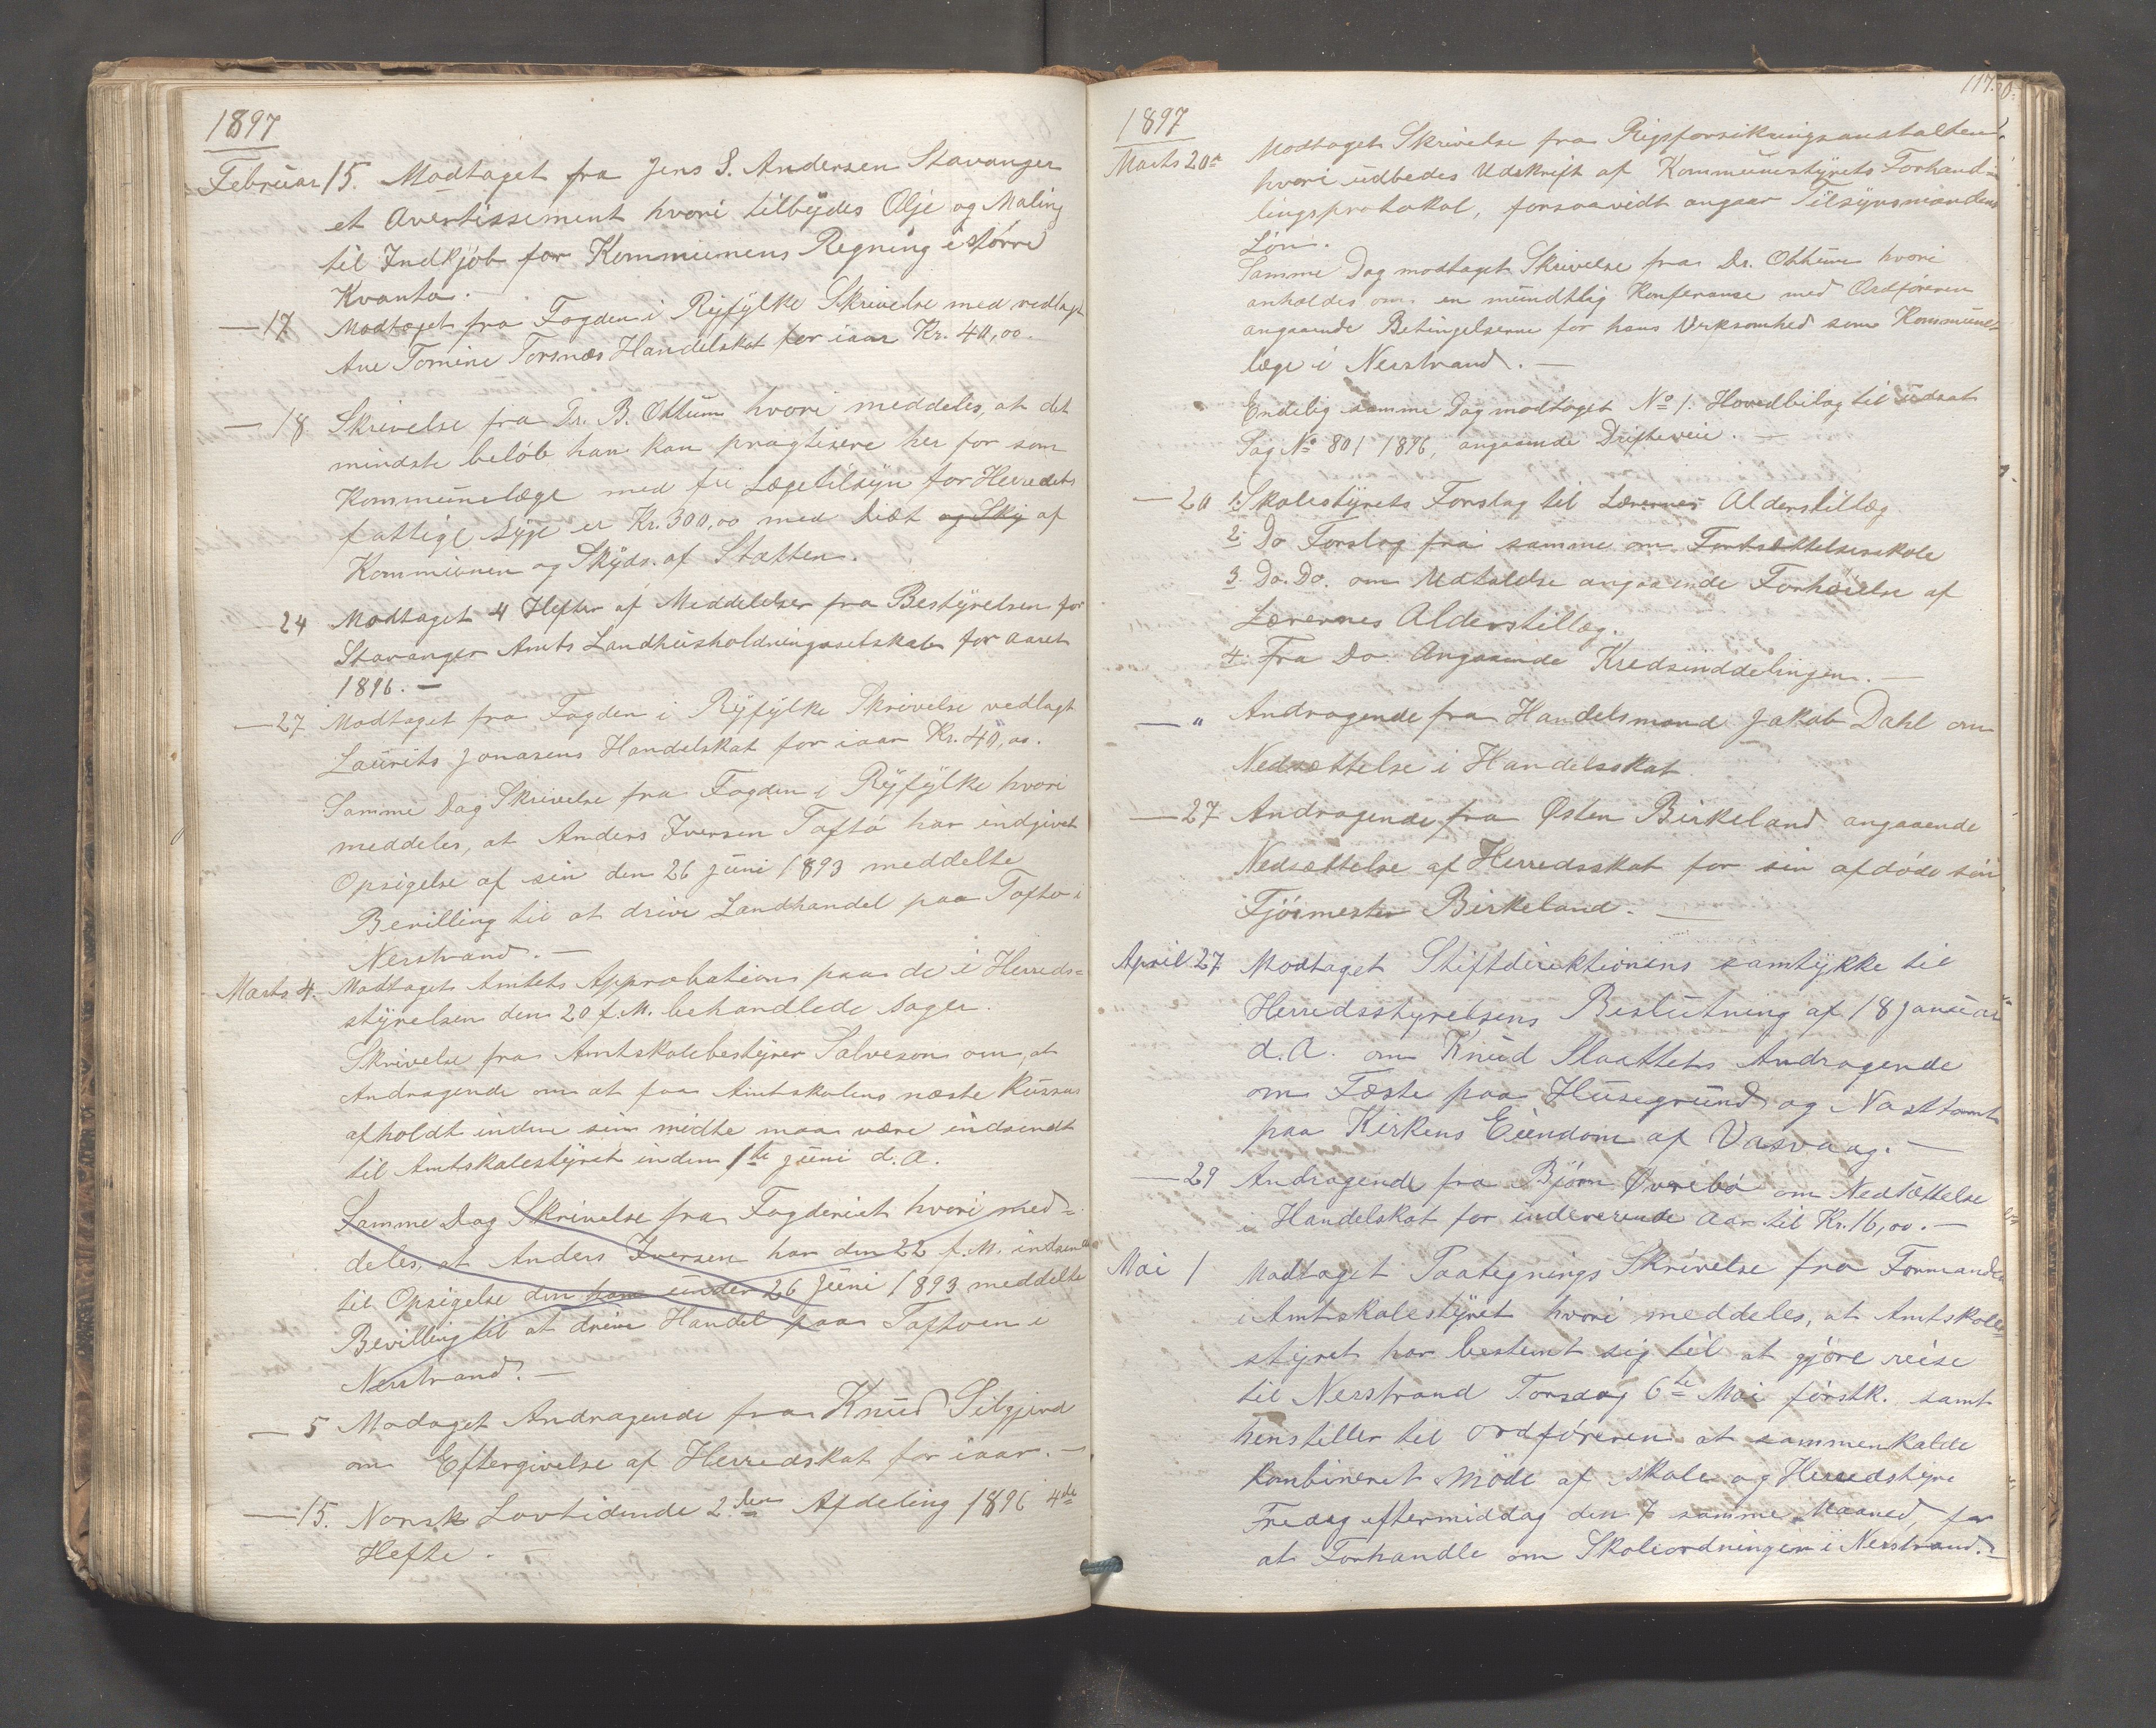 1897
Februar 15. Modtaget fra Jens S. Andersen Stavanger
et Avertissement hvori tilbydes Olje og Maling
til Indkjøb for Kommunens Regning i større
Kvanta.
— 17 Modtaget fra Fogden i Ryfylke Skrivelse med vedlagt
Ane Tomine Torsnæs Handelskat for iaar Kr. 40,00.
— 18 Skrivelse fra Dr. B. Ottum hvori meddeles, at det
mindste beløb han kan pragtisere her for som
Kommunelæge med fri Lægetilsyn for Herredets
fattige Syge er Kr. 300,00 med Diæt og Sky af
Kommunen og Skyds. af Statten.
24 Modtaget 4 Hefter af Meddelelser fra Bestyrelsen for
Stavanger Amts Landhusholdningsselskab for aaret
1896. —
— 27 Modtaget fra Fogden i Ryfylke Skrivelse vedlagt
Laurits Jonasens Handelskat for iaar Kr. 40,00.
Samme Dag Skrivelse fra Fogden i Ryfylke hvori
meddeles, at Anders Iversen Toftø har indgivet
Opsigelse af sin den 26 Juni 1893 meddelte
Bevilling til at drive Landhandel paa Toftø i
Nerstrand. —
Marts 4. Modtaget Amtets Approbation paa de i Herreds=
styrelsen den 20 f. M. behandlede Sager.
Skrivelse fra Amtskolebestyrer Salveson om, at
Andragende om at faa Amtskolens næste Kursus
afholdt inden sin midte maa være indsendt
til Amtskolestyret inden 1te Juni d. A.
Samme Dag Skrivelse fra Fogderiet hvori med=
deles, at Anders Iversen har den 22 f. M. indsendt
til Opsigelse den ham under 26 Juni 1893 meddelte
Bevilling til at drive Handel paa Toftøen i
Nerstrand. —
— 5 Modaget Andragende fra Knud Silgjerd
om Eftergivelse af Herredskat for iaar. —
— 15. Norsk Lovtidende 2den Afdeling 1896 4de
Hefte. —
117.
1897
Marts 20de Modtaget Skrivelse fra Rigsforsikringsanstalten
hvori udbedes Udskrift af Kommunestyrets Forhand=
lingsprotokol, forsaavidt angaar Tilsynsmandens
Løn.
Samme Dag modtaget Skrivelse fra Dr. Ottum hvori
anholdes om en mundtlig Konferanse med Ordføreren
angaaende Betingelserne for hans Virksomhed som Kommune
læge i Nerstrand. —
Endelig samme Dag modtaget No 1. Hovedbilag til udsat
Sag No 80 / 1896, angaaende Drifteveie. —
— 20 1. Skolestyrets Forslag til Lærernes Alderstillæg
2. Do Forslag fra samme om Fortsættelsesskole
3. Do. Do. om Udtalelse angaaende Forhøielse af
Lærernes Alderstillæg.
4. Fra Do. Angaaende Kredsinddelingen. —
— " Andragende fra Handelsmand Jakob Dahl om
Nedsættelse i Handelsskat.
— 27 Andragende fra Østen Birkeland angaaende
Nedsættelse af Herredsskat for sin afdøde søn
Fjøsmester Birkeland. —
April 27 Modtaget Stiftdirektionens samtykke til
Herredsstyrelsens Beslutning af 18 Januar
d. A. om Knud Slaattets Andragende
om Fæste paa Husegrund og Nosttomt
paa Kirkens Eiendom af Vasvaag. —
— 29 Andragende fra Bjørn Øvrebø om Nedsættelse
i Handelskat for indeværende Aar til Kr. 16,00. —
Mai 1 Modtaget Paategnings Skrivelse fra Formanden
i Amtskolestyret hvori meddeles, at Amtskole
styret har bestemt sig til at gjøre reise
til Nerstrand Torsdag 6te Mai førstk. samt
henstiller til Ordføreren at sammenkalde
kombineret Møde af Skole og Herredstyre
Fredag eftermiddag den 7 samme Maaned for
at Forhandle om Skoleordningen i Nerstrand. —